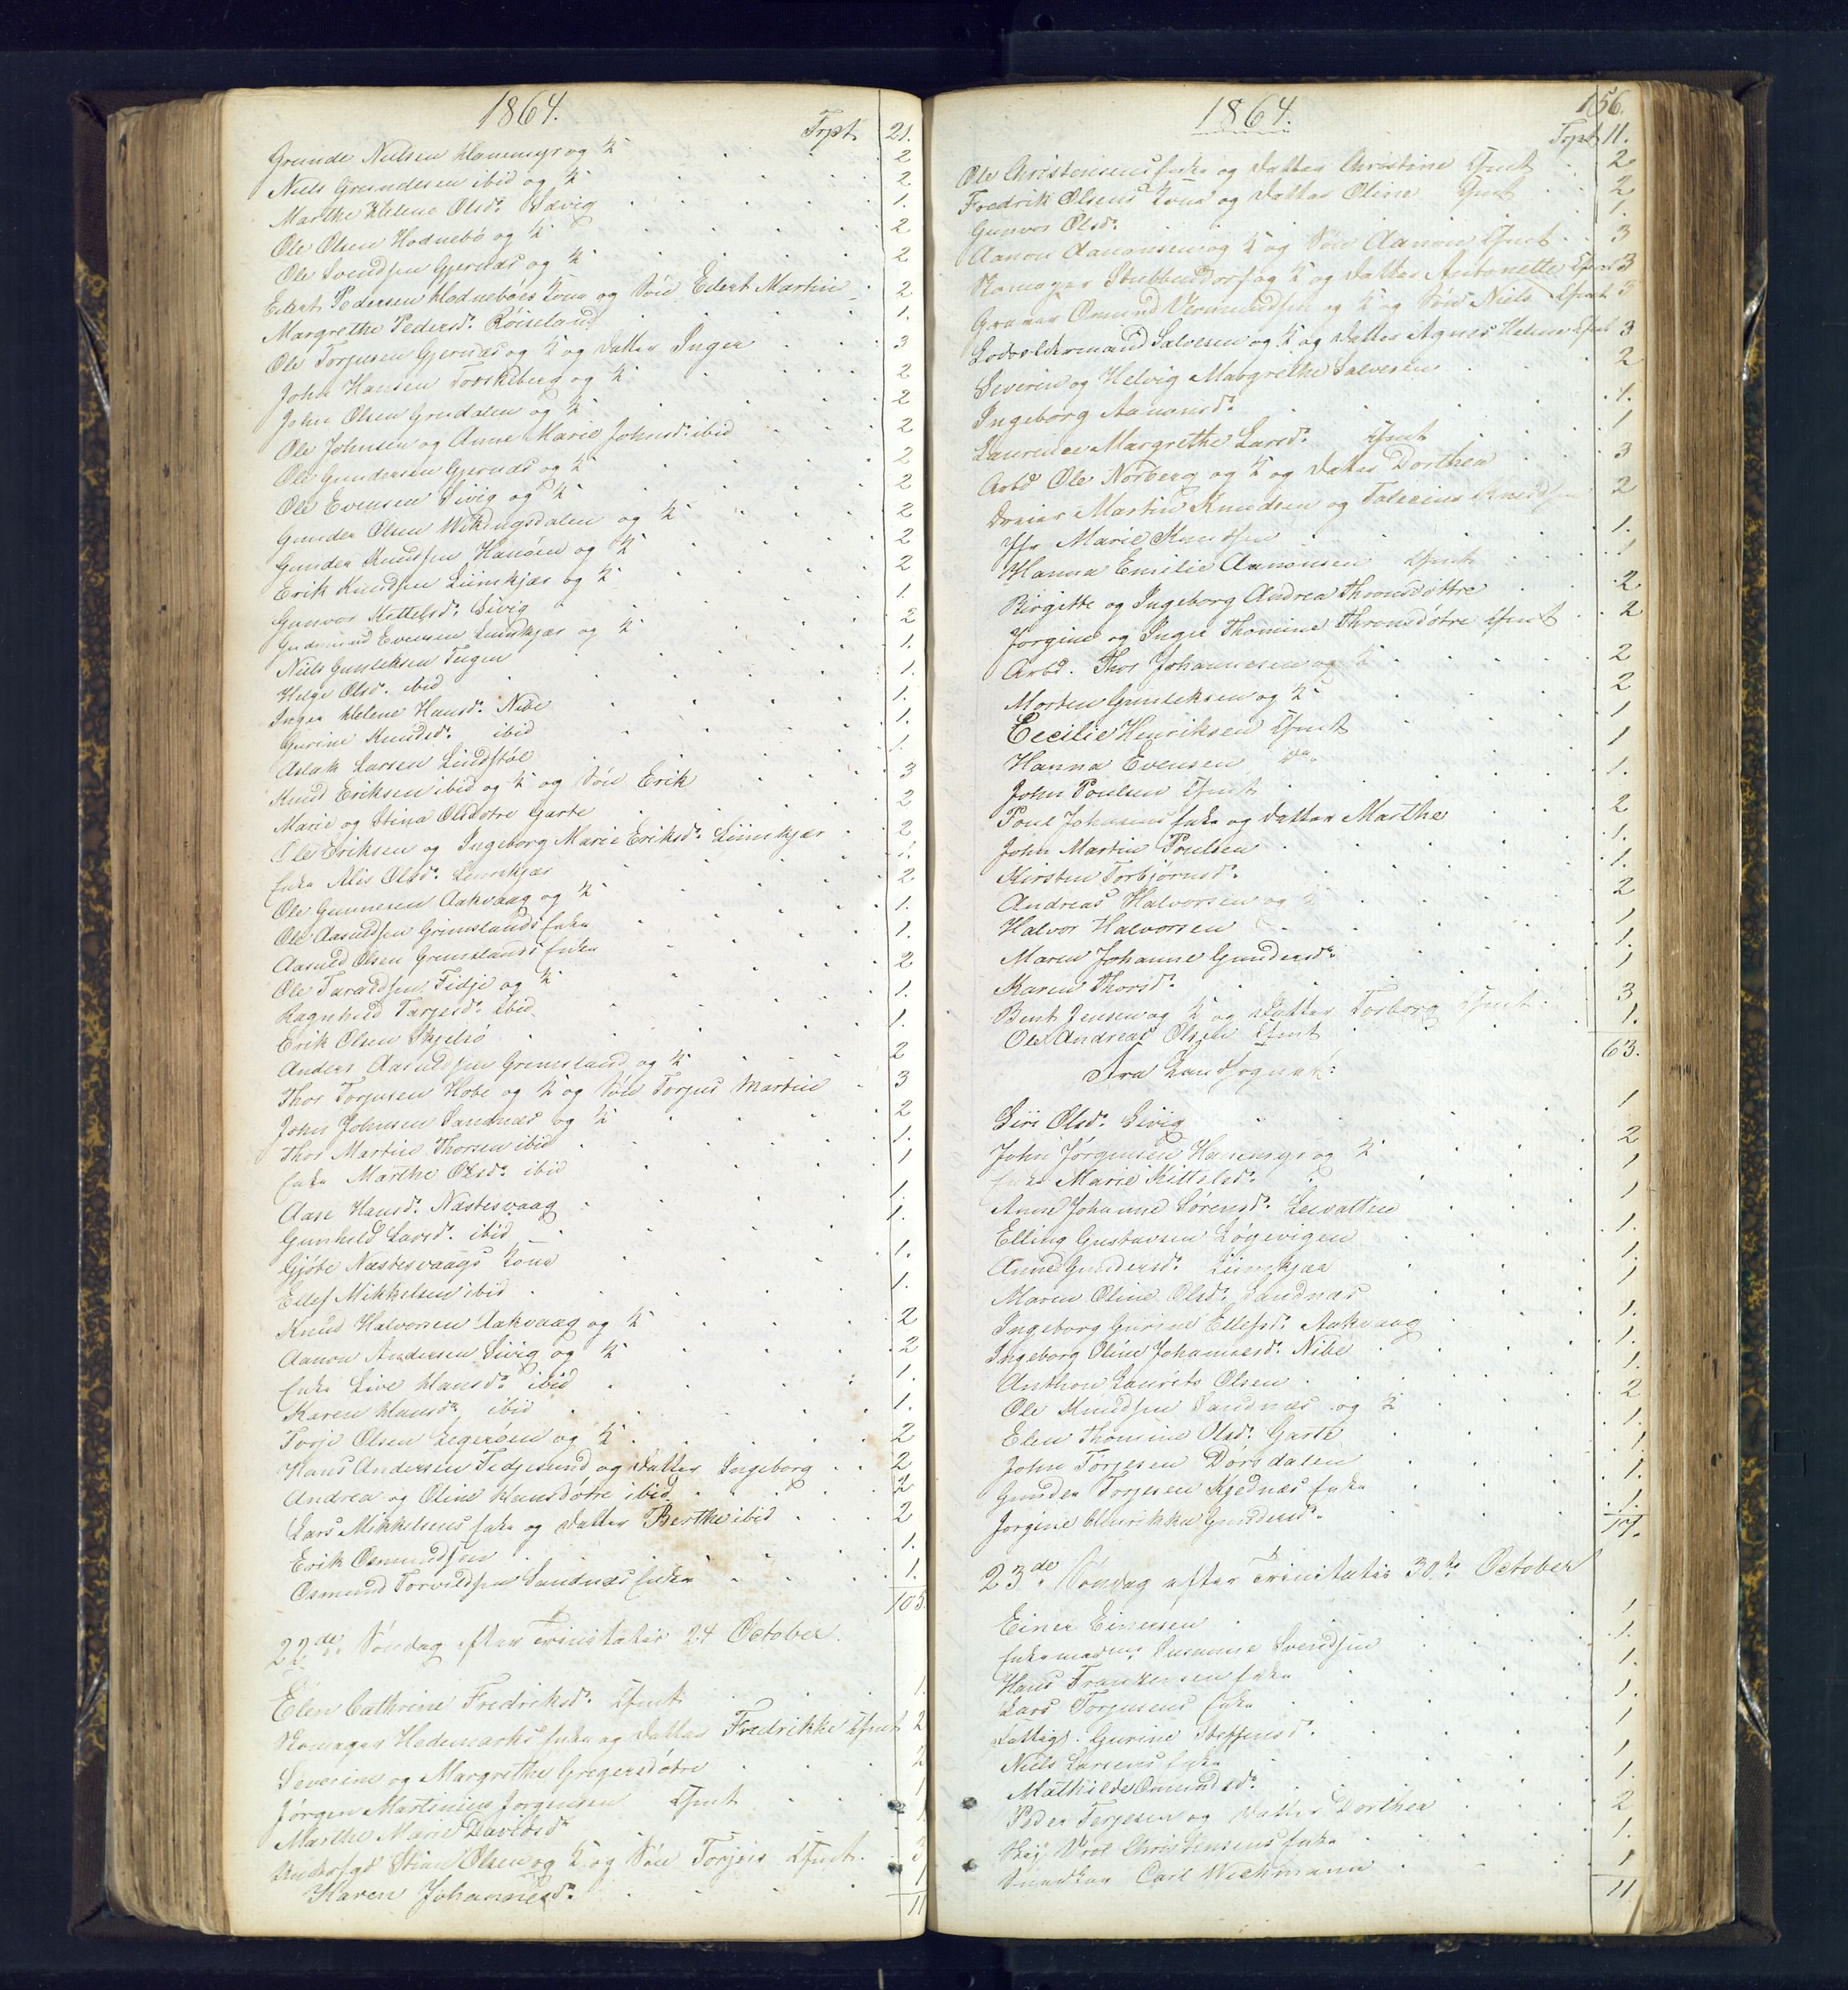 1864.
Trpt. 21.
Grunde Nielsen Hammyr og K. 2
Niels Grundesen ibid og K. 2
Marthe Helene Olsd. Sævig 1.
Ole Olsen Hodnebö og K. 2
Ole Svendsen Gjernæs og K. 2
Edert Pedersen Hodneböes Kone og Sön Edert Martin 2
Margrethe Pedersd. Röiseland 1.
Ole Torjusen Gjernæs og K. og Datter Inger 3
John Hansen Torskeberg og K. 2
John Olsen Grusdalen og K. 2
Ole Johnsen og Anne Marie Johnsd. ibid 2
Ole Gundersen Gjernæs og K. 2
Ole Evensen Sivig og K. 2
Gunder Olsen Wikingsdalen og K. 2
Gunder Knudsen Hanöen og K. 2
Erik Knudsen Liimkjær og K. 2
Gunvor Kettelsd. Sivig 1.
Gudmund Evensen Liimkjær og K. 2
Niels Gunleksen Teigen 1.
Helge Olsd. ibid 1.
Inger Helene Hansd. Nibe 1.
Gurine Knudsd. ibid 1.
Aslak Larsen Lindstöl 1.
Knud Eriksen ibid og K. og Sön Erik 3
Marie og Stina Olsdøtre Garte 2
Ole Eriksen og Ingeborg Marie Eriksd. Liimkjær 2
Enke Alis Olsd. Liimkjær 1.
Ole Gunnersen Aakvaag og K. 2
Ole Aasuldsen Grimslands Enke 1.
Aasuld Olsen Grimslands Enke 1.
Ole Taraldsen Fidje og K. 2
Ragnhild Tarjesd. ibid 1.
Erik Olsen Skjelbö 1.
Anders Aasuldsen Grimsland og K. 2
Thor Torjusen Hobe og K. og Sön Torjus Martin 3
John Johnsen Sandnæs og K. 2
Thor Martin Thorsen ibid 1.
Enke Marthe Olsd. ibid 1
Aase Hansd. Næstesvaag 1.
Gunhild Larsd. ibid 1.
Gjöbe Næstesvaags Kone 1.
Ellef Mikkelsen ibid 1.
Knud Halvorsen Aakvaag og K. 2
Aanon Andersen Sivig og K. 2
Enke Live Hansd. ibid 1.
Karen Hansd. ibid 1.
Torje Olsen Legeröen og K. 2
Hans Andersen Fedjesund og Datter Ingeborg 2
Andrea og Oline Hansdötre ibid 2
Lars Mikkelsens Enke og Datter Berthe ibid 2
Erik Osmundsen 1.
Osmund Torvildsen Sandnæs Enke 1.
105.
22de Söndag efter Trinitatis 24 October.
Elen Cathrine Fredriksd. Cfmt. 1.
Skomager Hedemarks Enke og Datter Fredrikke Cfmt 2
Severine og Margrethe Gregersdötre 2
Jörgen Martinius Jorgensen Cfmt 1
Marthe Marie Davidsd. 1
Stian Olsen og K. og Sön Torjeis Cfmt. 3
Karen Johannesd. 1
11
1864.
156.
Trpt 11.
Ole Christensens Enke og Datter Christine Cfmt 2
Fredrik Olsens Kone og Datter Oline Cfmt 2
Gunvor Olsd. 1.
Aanon Aanonsen og K. og Sön Aanon Cfmt 3
Skomager Stubbendorf og K. og Datter Antonette Cfmt 3
Osmund Vermundsen og K. og Sön Niels Cfmt 3
Salvesen og K. og Datter Agnes Helene Cfmt 3
Severin og Helvig Margrethe Salvesen 2
Ingeborg Aanonsd. 1.
Laurence Margrethe Larsd. Cfmt 1
Arbd Ole Norberg og K. og Datter Dorthea 3
Martin Knudsen og Knudsen 2
Jfr. Marie Knudsen 1.
Hanna Emilie Aanonsen Cfmt 1
Birgitte og Ingeborg Andrea Thronsdöttre 2
Jörgine og Inger Thomine Thronsdötre Cfmt 2
Arbd. Thor Johannesen og K. 2
Morten Gunleksen og K. 2
Cecilie Henriksen Cfmt 1
Hanna Evensen do. 1
John Poulsen Cfmt 1.
Poul Johnsens Enke og Datter Marthe 2
John Martin Poulsen 1.
Kirsten Torbjörnsd. 1.
Andreas Halvorsen og K. 2
Halvor Halvorsen 1
Maren Johanne Gundersd. 1.
Karen Thorsd. 1
Bent Jensen og K. og Datter Torborg Cfmt. 3
Ole Andreas Olsen Cfmt 1.
63.
Fra Landsognet:
Siri Olsd. Sivig 1
John Jörgensen Hammyr og K. 2
Enke Marie Kittelsd. 1
Anne Johanne Sörensd. Leivolden 1
Elling Gustavsen Lögevigen 1.
Anne Gundersd. Liimkjær 1
Maren Oline Olsd. Sandnæs 1
Ingeborg Gurine Ellefsd. Aakvaag 1.
Ingeborg Oline Johannesd. Nibe 1.
Anthon Laurits Olsen 1.
Ole Knudsen Sandnæs og K. 2
Elen Thomine Olsd. Garte 1.
John Torjesen Dörsdalen 1.
Gunder Torjesen Kjednæs Enke 1.
Jorgine Henrikke Gundersd. 1.
17.
23de Söndag efter Trinitatis 30te October
Einer Einersen 1
Enkemadm. Susanne Svendsen 1.
Hans Frankensen Enke 1.
Lars Torjusens Enke 1.
Fattigl. Gurine Steffensd. 1
Niels Larsens Enke 1
Mathilde Osmundsd. 1.
Peder Terjesen og Datter Dorthea 2
Christensens Enke 1.
Snedker Carl Wichmann 1
11